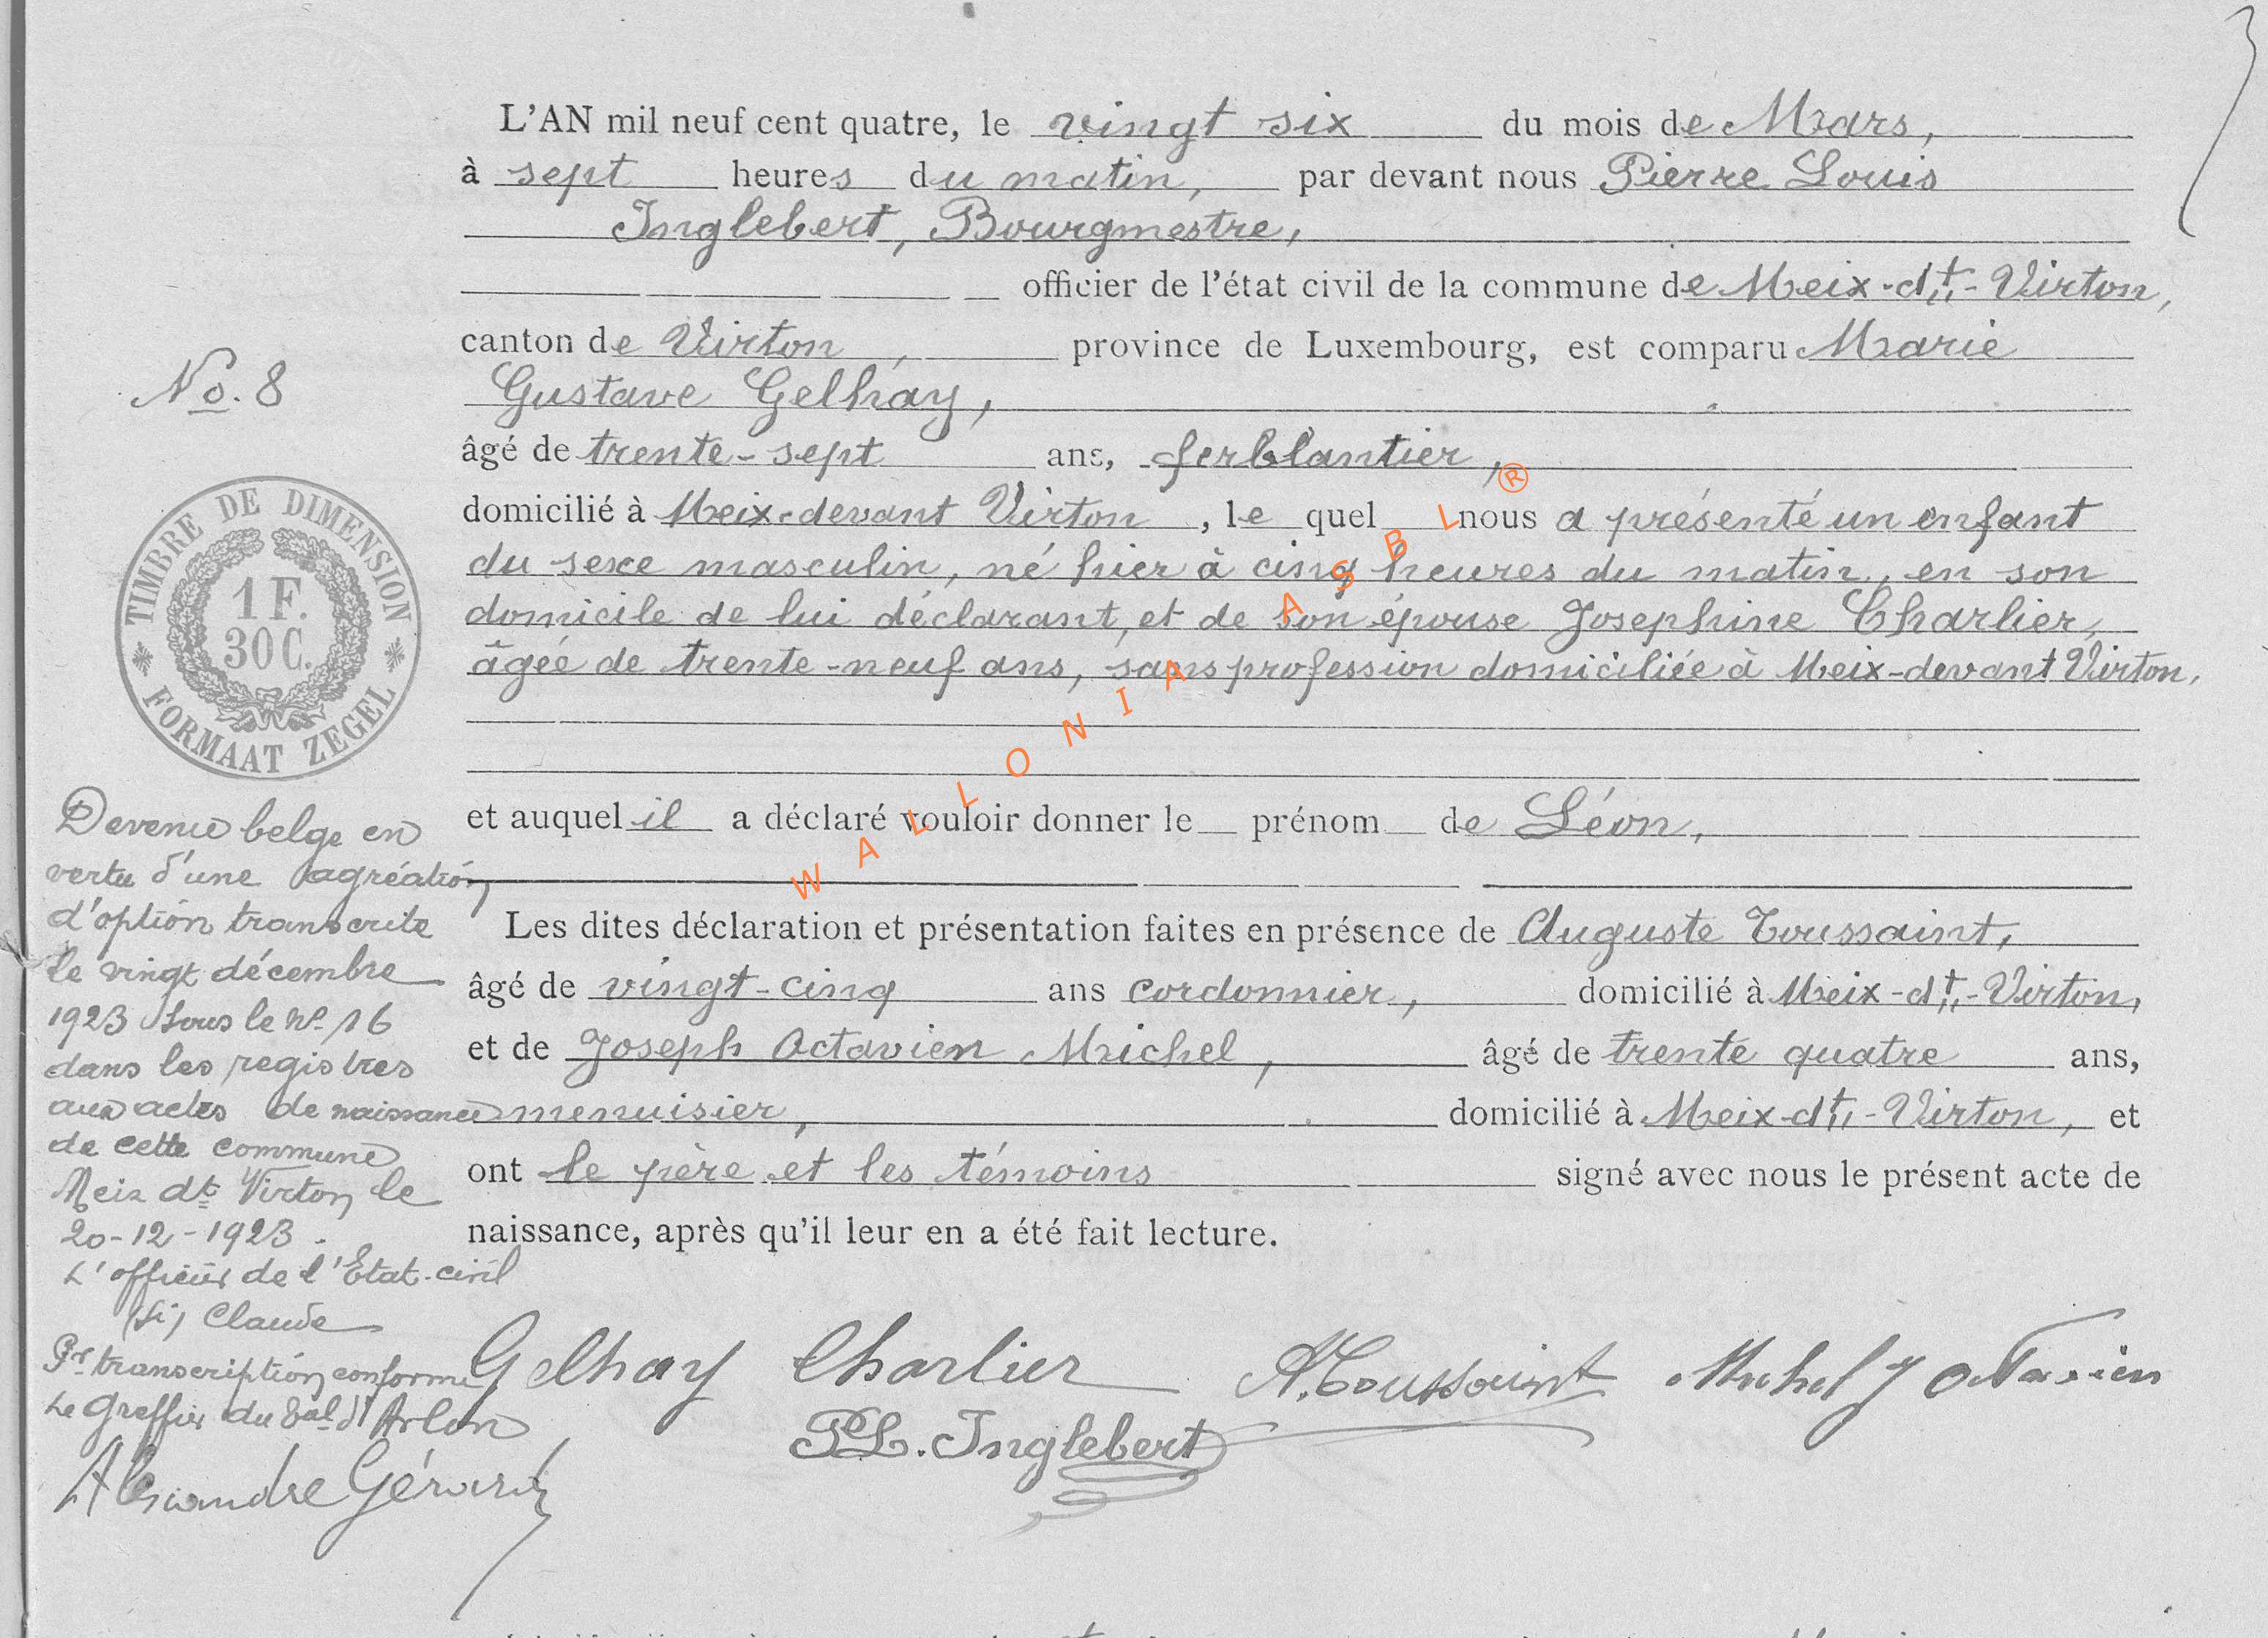 L'AN mil neuf cent quatre, le vingt six du mois de Mars,
à sept heures du matin, par devant nous Pierre Louis
Inglebert, Bourgmestre,
officier de l'état civil de la commune de Meix-dt-Virton,
canton de Virton, province de Luxembourg, est comparu Marie
No. 8
Gustave Gelhay,
âgé de trente-sept ans, ferblantier,
domicilié à Meix-devant Virton, le quel nous a présenté un enfant
du sexe masculin, né hier à cinq heures du matin, en son
domicile de lui déclarant, et de son épouse Josephine Charlier,
âgée de trente-neuf ans, sans profession domiciliée à Meix-devant Virton,
TIMBRE DE DIMENSION
1 F.
30 C.
FORMAAT ZEGEL
et auquel il a déclaré vouloir donner le prénom de Léon,
Les dites déclaration et présentation faites en présence de Auguste Toussaint,
âgé de vingt-cinq ans cordonnier, domicilié à Meix-dt-Virton,
et de Joseph Octavien Michel, âgé de trente quatre ans,
menuisier, domicilié à Meix-dt-Virton, et
ont le père et les témoins signé avec nous le présent acte de
naissance, après qu'il leur en a été fait lecture.
Devenu belge en
vertu d'une agréation
d'option transcrite
le vingt décembre
1923 sous le No 16
dans les registres
aux actes de naissance
de cette commune
Meix dt Virton le
20-12-1923.
L'officier de l'Etat-civil
(si) Claude
Pr transcription conforme
Le Greffier du Bal d'Arlon
Alexandre Gérard
Gelhay Charlier A. Toussaint Michel J Octavien
PL. Inglebert
WALLONIA ASBL ®